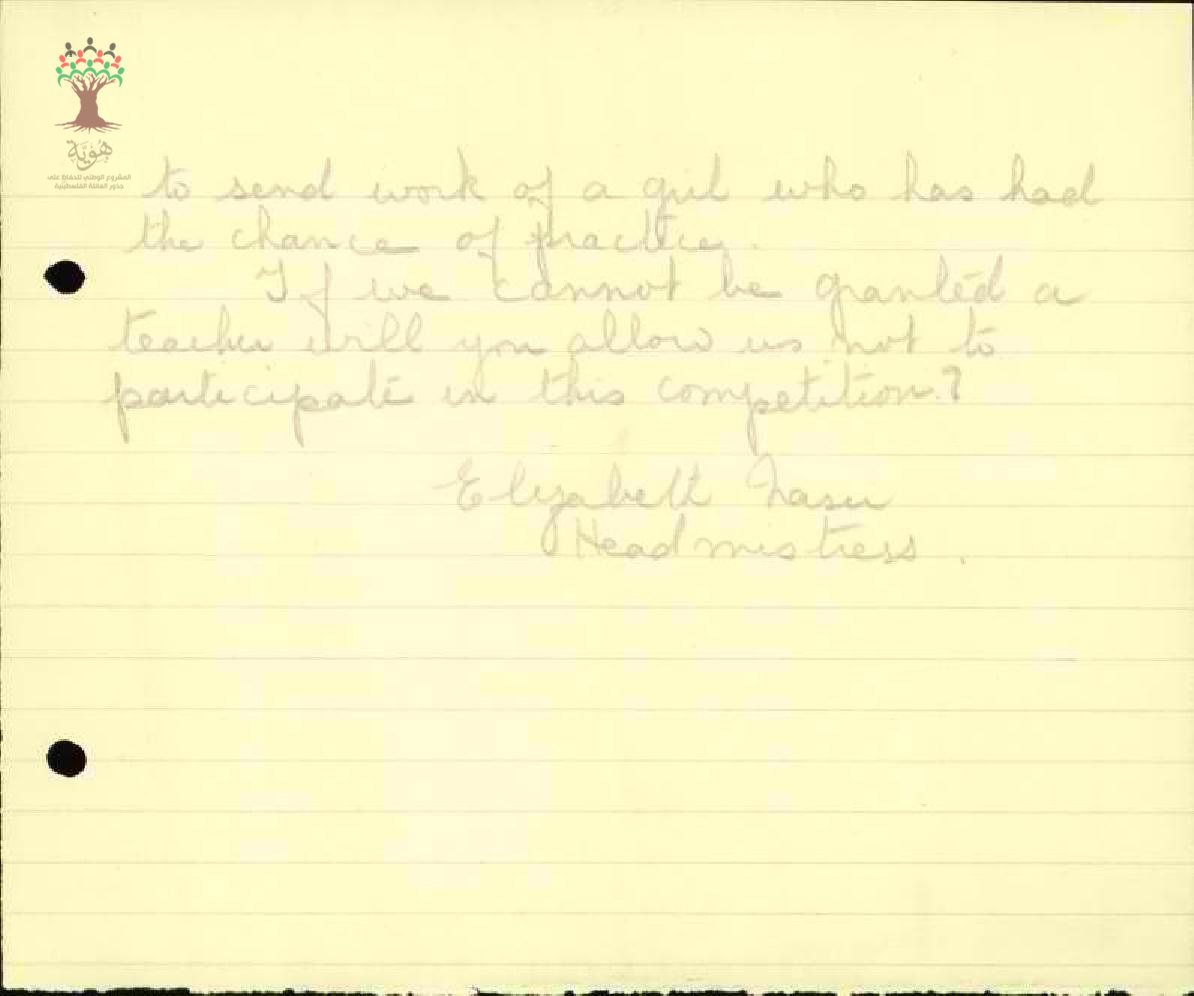 هُوِيَّة
المشروع الوطني للحفاظ على
جذور العائلة الفلسطينية
to send work of a girl who has had
the chance of practice.
If we cannot be granted a
teacher will you allow us not to
participate in this competition?
Elizabeth Nasir
Headmistress.